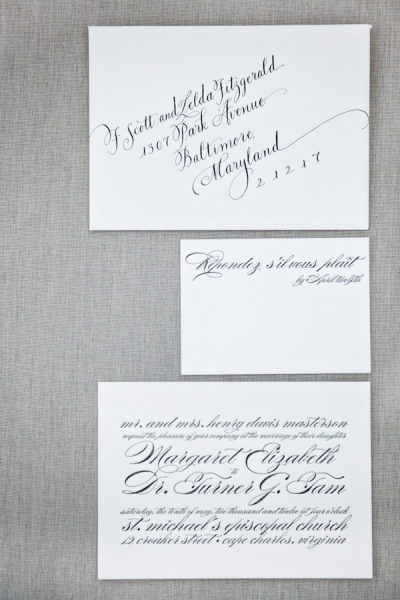 F Scott and Zelda Fitzgerald
1307 Park Avenue
Baltimore
Maryland
21217
Répondez s'il vous plait
by April twelfth
mr. and mrs. henry davis masterson
request the pleasure of your company at the marriage of their daughter
Margaret Elizabeth
to
Dr. Turner G. Tam
saturday, the tenth of may, two thousand and twelve at four o'clock
st. michael's episcopal church
12 croaker street · cape charles, virginia